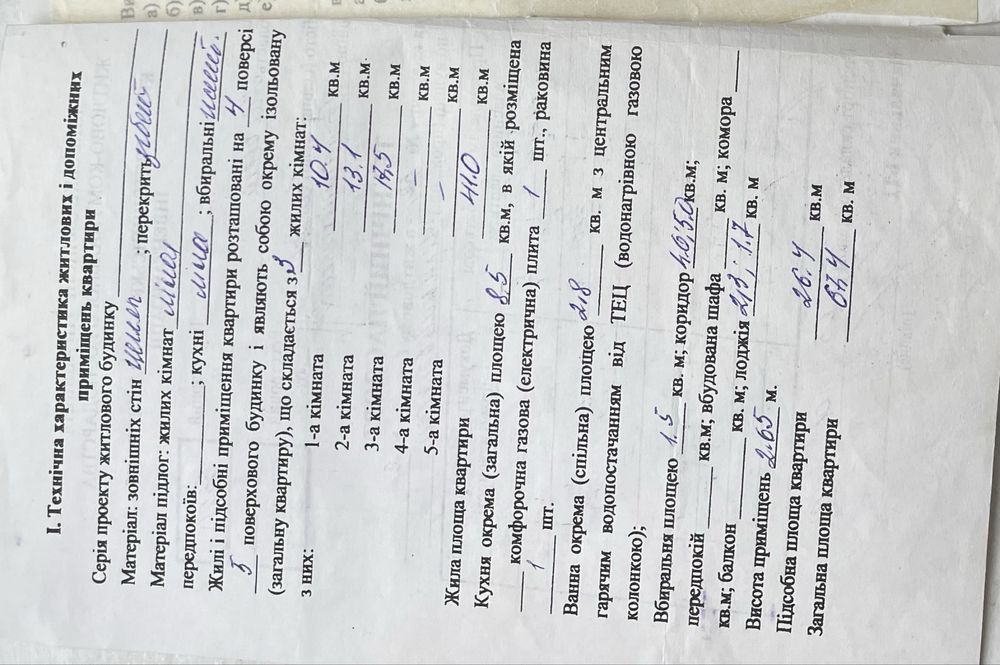 І. Технічна характеристика житлових і допоміжних
приміщень квартири
Серія проекту житлового будинку
Матеріал: зовнішніх стін цегла ; перекриття
Матеріал підлог: жилих кімнат лінол
передпокоїв: ; кухні ліно ; вбиральні
Жилі і підсобні приміщення квартири розташовані на 4 поверсі
5 поверхового будинку і являють собою окрему ізольовану
(загальну квартиру), що складається з 3 жилих кімнат:
з них: 1-а кімната 10.4 кв.м
2-а кімната 13.1 кв.м
3-а кімната кв.м
4-а кімната – кв.м
5-а кімната – кв.м
Жила площа квартири 41.0 кв.м
Кухня окрема (загальна) площею 8.5 кв.м, в якій розміщена
комфорочна газова (електрична) плита 1 шт., раковина
1 шт.
Ванна окрема (спільна) площею 2,8 кв. м з центральним
гарячим водопостачанням від ТЕЦ (водонагрівною газовою
колонкою);
Вбиральня площею 1.5 кв. м; коридор кв.м;
передпокій кв.м; вбудована шафа кв. м; комора
кв.м; балкон кв. м; лоджія 2,3; 1.7 кв. м
Висота приміщень 2.65 м.
Підсобна площа квартири 26.4 кв.м
Загальна площа квартири 67.4 кв. м